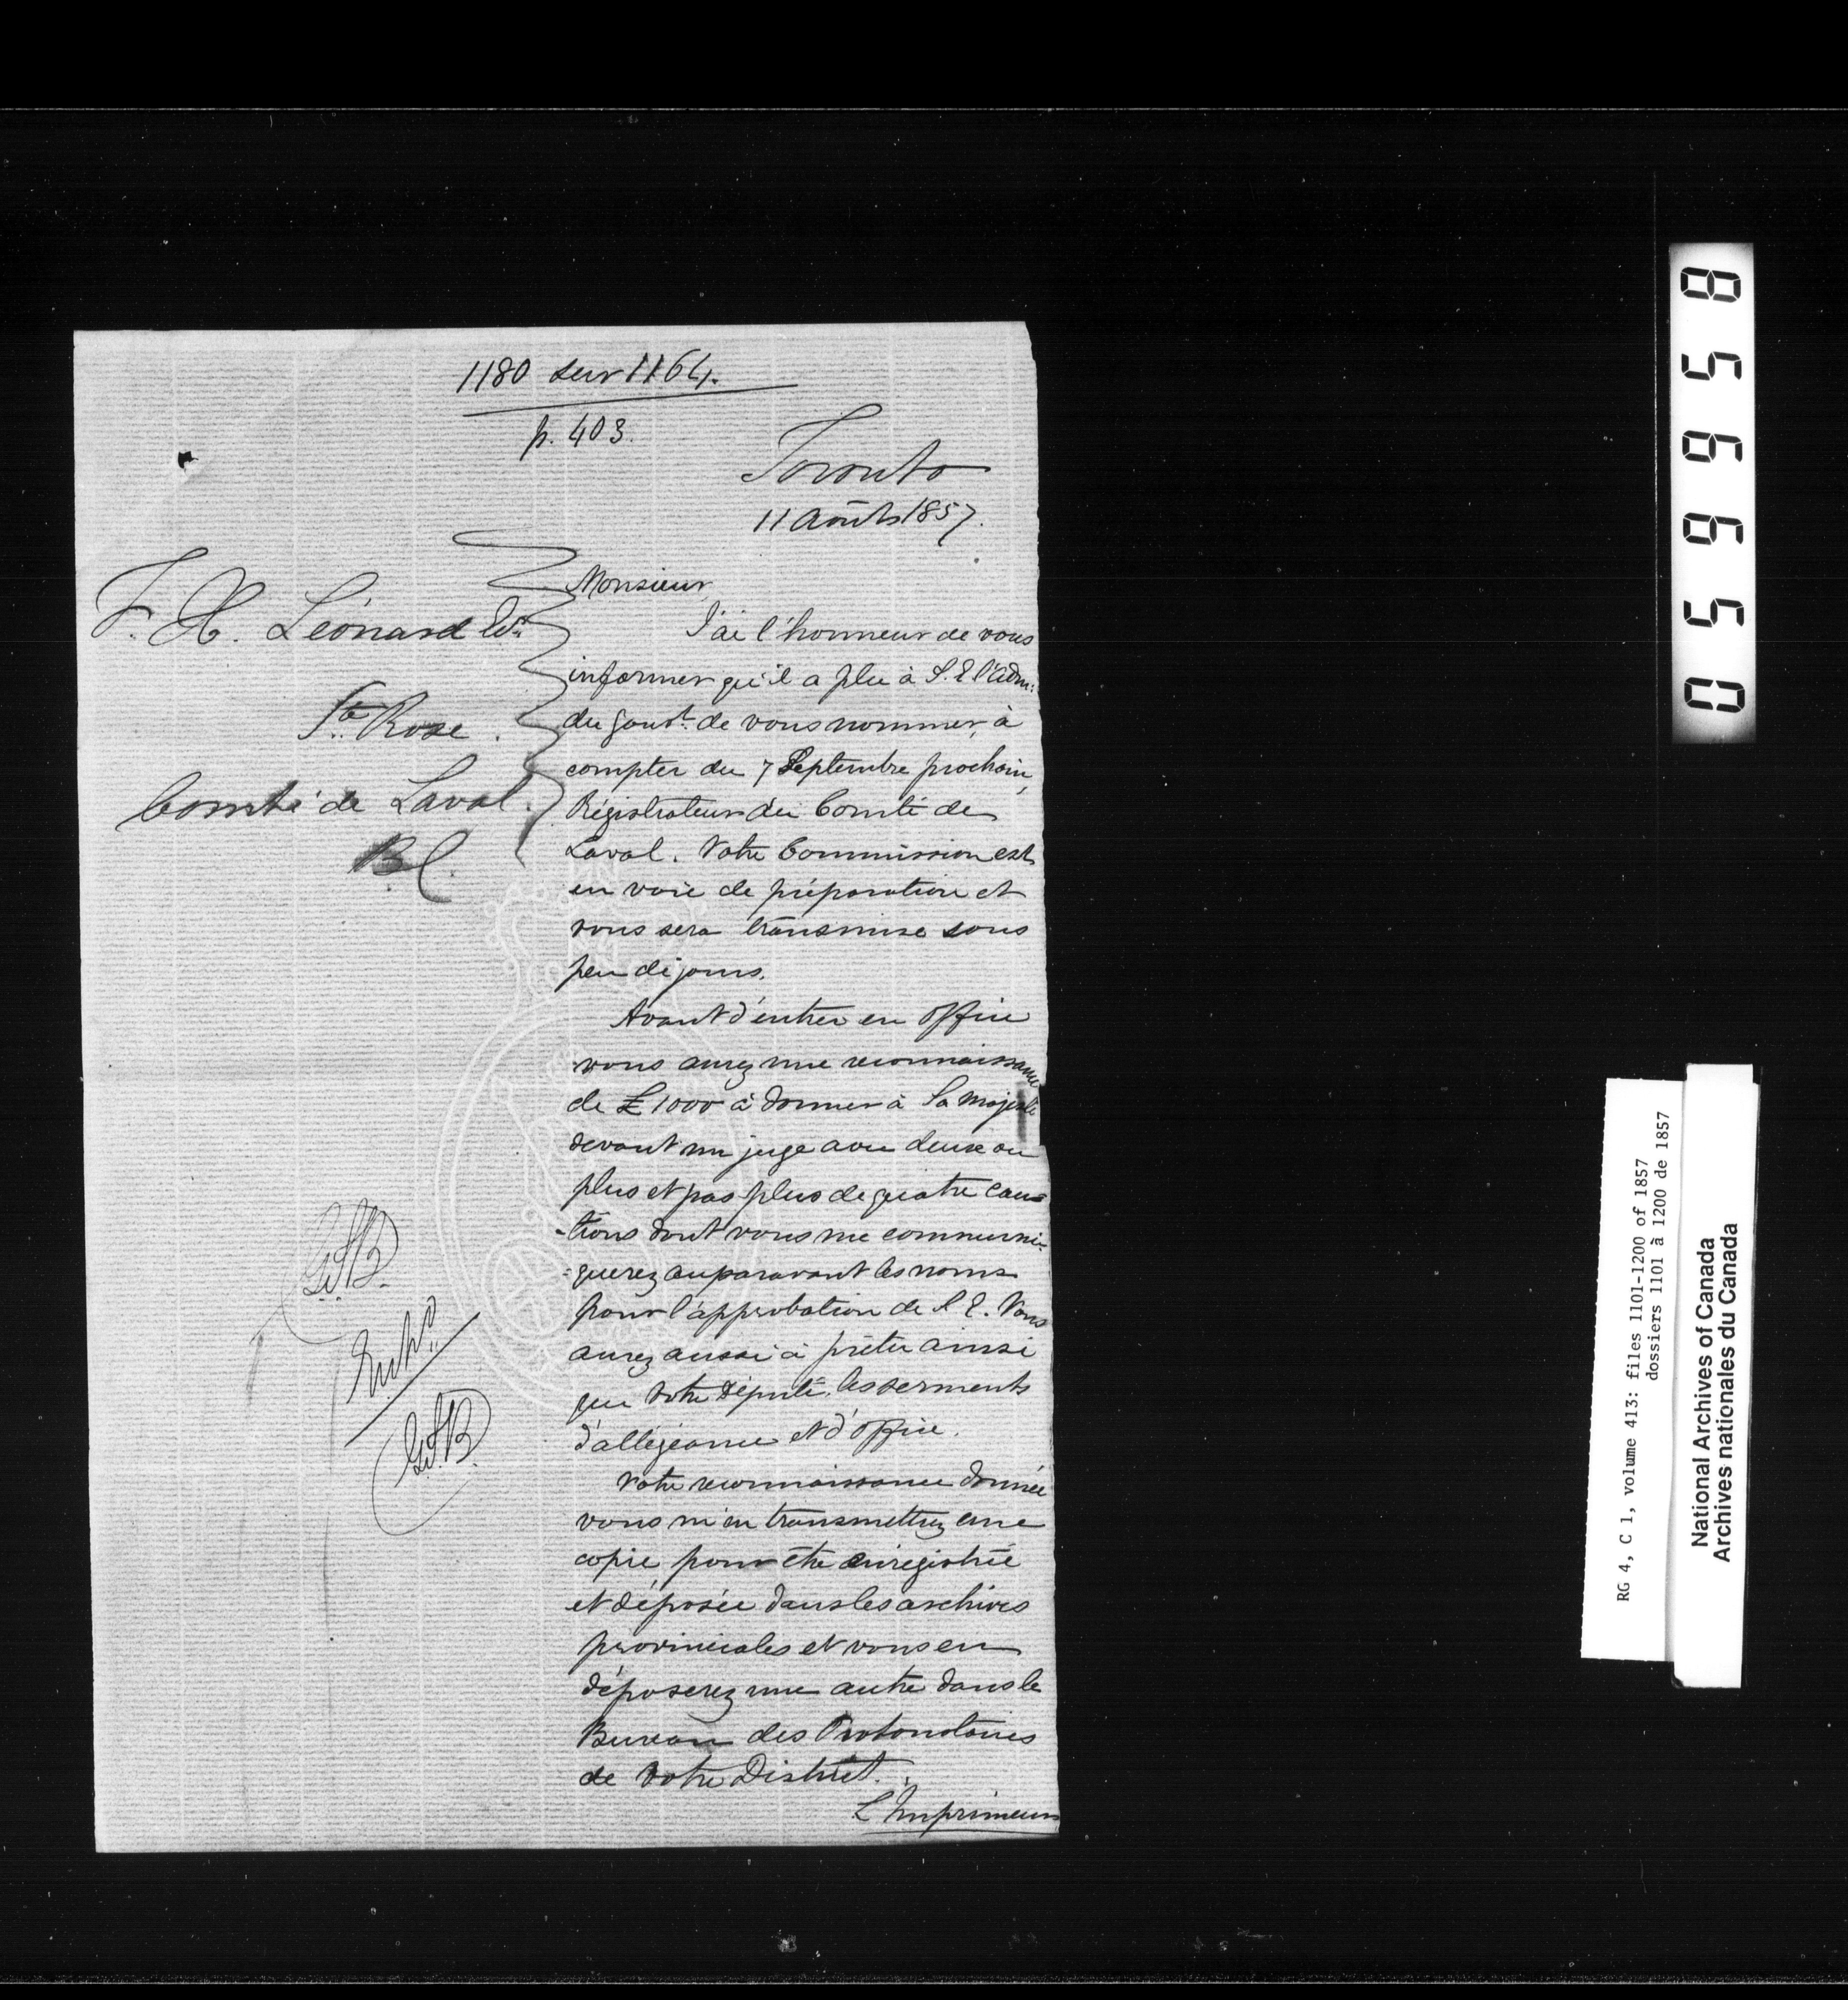 1180 sur 1164.
p. 403.
Toronto
11 Août 1857.
F. H. Léonard
Ste Rose.
Comté de Laval.
B.C.
Monsieur,
J'ai l'honneur de vous
informer qu'il a plu à S. E. l'Adm:
du Gouvt. de vous nommer, à
compter du 7 Septembre prochain,
Régistrateur du Comté de
Laval. Votre Commission est
en voie de préparation et
vous sera transmise sous
peu de jours.
Avant d'entrer en Office
vous aurez une reconnaissance
de £1000 à donner à Sa Majesté
devant un juge avec deux ou
plus et pas plus de quatre cau=
-tions dont vous me communi-
=querez auparavant les noms
pour l'approbation de S. E. Vous
aurez aussi à prêter ainsi
que votre Député, les serments
d'allégeance et d'Office.
Votre reconnaissance donnée
vous m'en transmettrez une
copie pour être enregistrée
et déposée dans les archives
provinciales et vous en
déposerez une autre dans le
Bureau des Protonotaires
de votre District.
L'Imprimeur
059958
RG 4, C 1, volume 413: files 1101-1200 of 1857
dossiers 1101 à 1200 de 1857
National Archives of Canada
Archives nationales du Canada